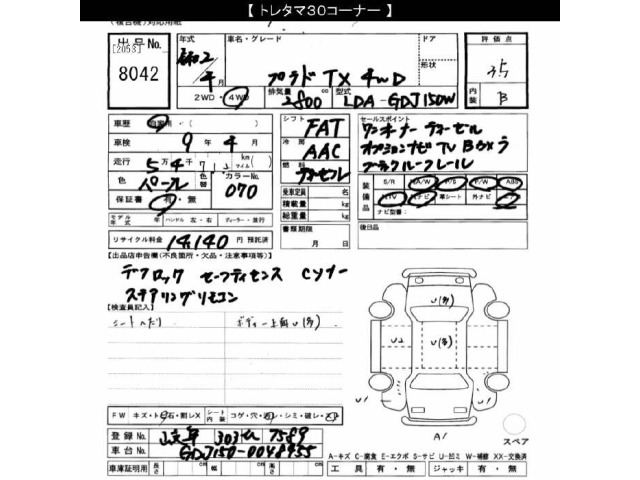 【 トレタマ30コーナー 】
出品No. [2053] 8042
年式 令和2年 4月
車名・グレード プラド TX 4WD
ドア 形状
評価点 3.5
内装 B
2WD・4WD 排気量 2800 cc 型式 LDA-GDJ150W
車歴 自家用・( )
車検 9年 4月
走行 5万4千713 km (マイル)
色 パール 色替 カラーNo. 070
保証書 有・無
モデル年式 年 ハンドル 左・右 ディーラー・並行
リサイクル料金 14,140 円 預託済
シフト FAT
冷房 AAC
燃料 ディーゼル
乗車定員 名
積載量 kg
総重量 kg
書類期限 月 日
セールスポイント
ワンオーナー ディーゼル
オプションナビ TV Bカメラ
ブラックルーフレール
装備品 S/R A/W P/S P/W ABS
TV ナビ 革シート 外ナビ
ナビ型番:
後日品
【出品店申告欄(不良箇所・欠品・注意事項等)】
デフロック セーフティセンス Cソナー
ステアリングリモコン
【検査員記入】
シートヘたり ボディー上面U(多)
U(多)
U2 U(多)
U1 U1
A1
スペア
FW キズ・トビ石・割レX シート内装 コゲ・穴・汚レ・シミ・破レ・スレ
登録No. 岐阜 303 せ 7589
車台No. GDJ150-0048955
車庫証明用 長さ cm 幅 cm 高さ cm
A-キズ C-腐食 E-エクボ S-サビ U-凹ミ W-補修 XX-交換済
工具 有・無 ジャッキ 有・無